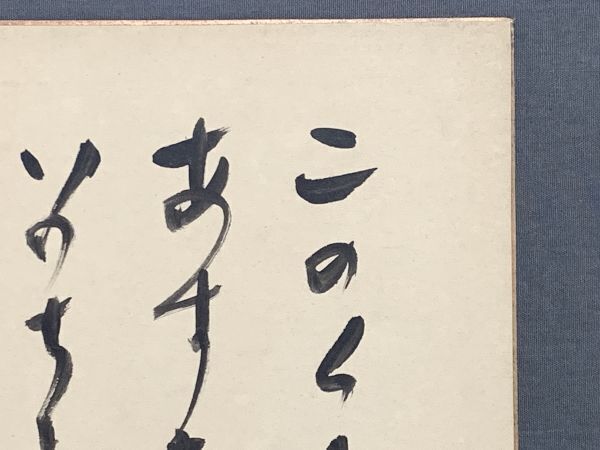 このく
あす
いのち